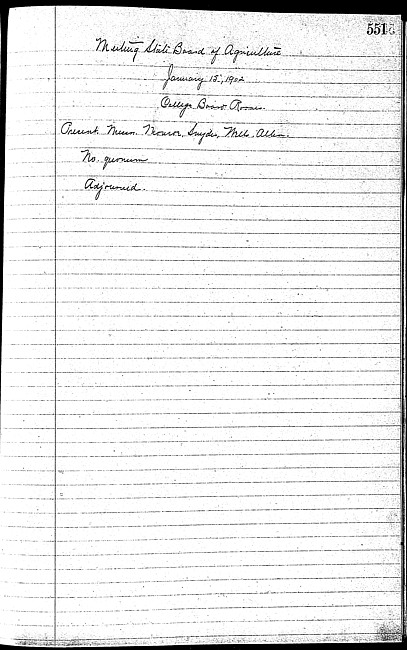 551
Meeting State Board of Agriculture
January 15, 1902
College Board Rooms.
Present Messrs. Monroe, Snyder, Wells, Allen.
No. quorum
Adjourned.